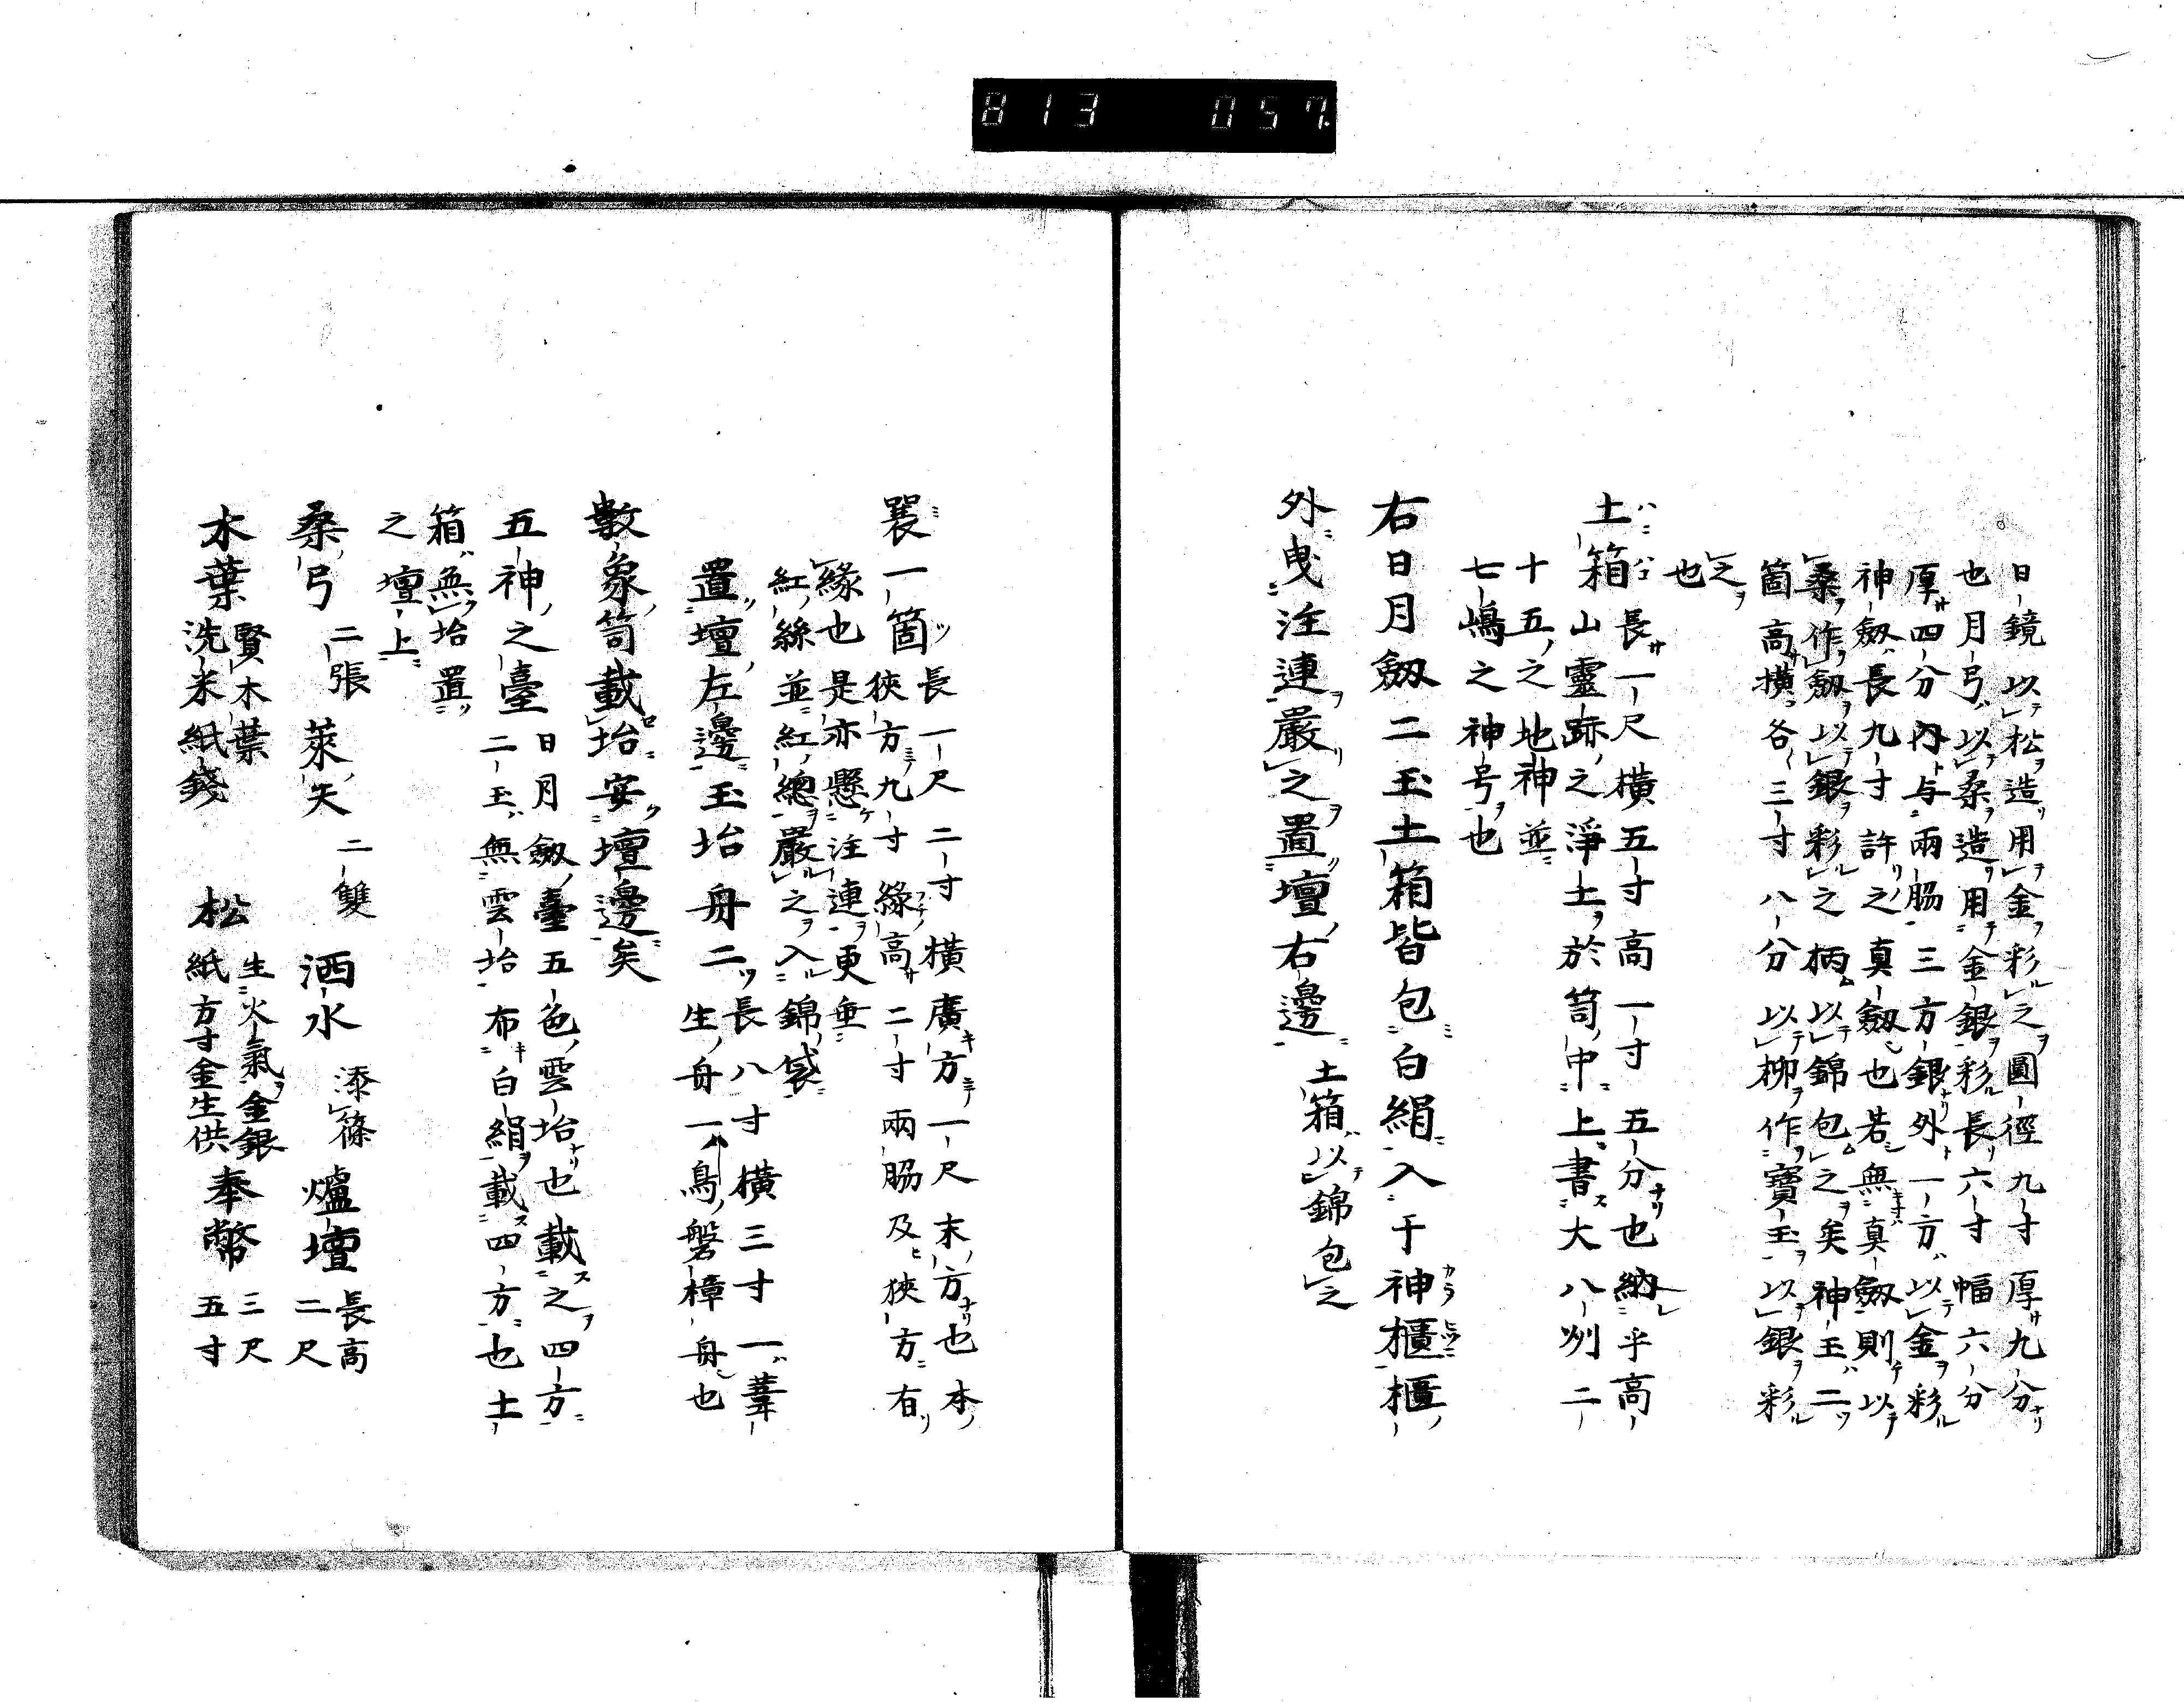 813 057
日鏡以松造用金彩之圓徑九寸厚九分
也月弓以桑造用金銀彩長六寸幅六分
厚四分内与兩脇三方銀外一方以金彩
神劔長九寸許之真劔也若無真劔則以
桑作劔以銀彩之柄以錦包之矣神玉二
箇高横各三寸八分以柳作寶玉以銀彩
之也
土箱長一尺横五寸高一寸五分也納乎高
山靈跡之淨土於笥中上書大八洲二
十五之地神並
七嶋之神号也
右日月劔二玉土箱皆包白絹入于神櫃櫃
外曳注連嚴之置壇右邊土箱以錦包之
一箇長一尺二寸横廣方一尺末方也本
狹方九寸緣高二寸兩脇及狹方有
緣也是亦懸注連更垂
紅絲並紅總嚴之入錦袋
置壇左邊玉坮舟二長八寸横三寸一葦
生舟一鳥磐樟舟也
數象笥載坮安壇邊矣
五神之臺日月劔臺五色雲坮也載之四方
二玉無雲坮布白絹載四方也土
箱無坮置
之壇上
桑弓二張萊矢二雙洒水添篠爐壇長高二尺
木葉賢木葉洗米紙錢松生火氣金銀紙方寸金生供奉幣三尺五寸